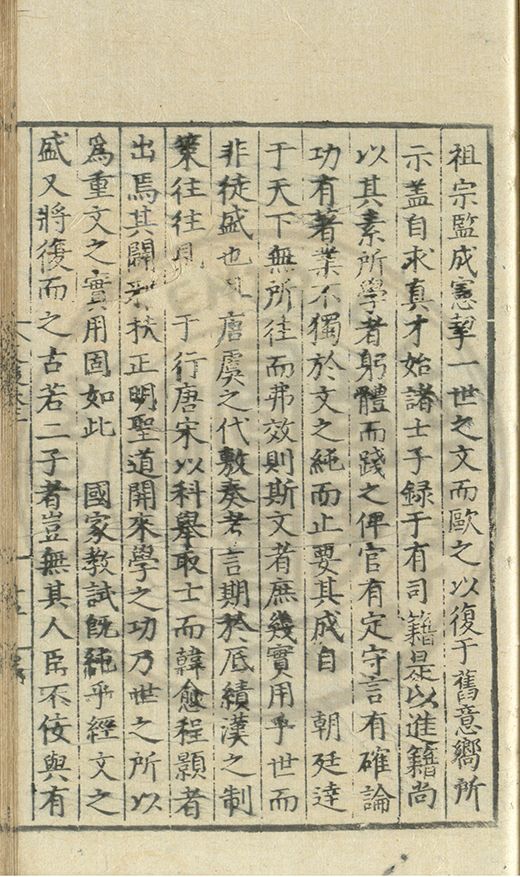 祖宗監成憲挈一世之文而歐之以復于舊意嚮所
示盖自求真才始諸士子録于有司籍是以進籍尚
以其素所學者躬體而踐之俾官有定守言有確論
功有著業不獨於文之純而止要其成自　朝廷達
于天下無所往而弗效則斯文者庶幾實用乎世而
非徒盛也　唐虞之代敷奏考言期於厎績漢之制
策往往見　于行唐宋以科舉取士而韓愈程顥者
出焉其闢邪扶正明聖道開來學之功乃世之所以
為重文之實用固如此　國家教試既純乎經文之
盛又將復而之古若二子者豈無其人臣不佞與有